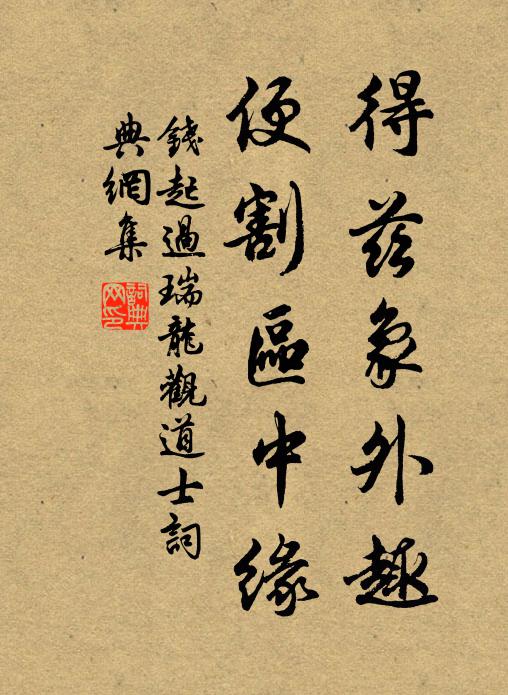 得茲象外趣
便割區中緣
錢起過瑞龍觀道士詞
典網集
詞典網印